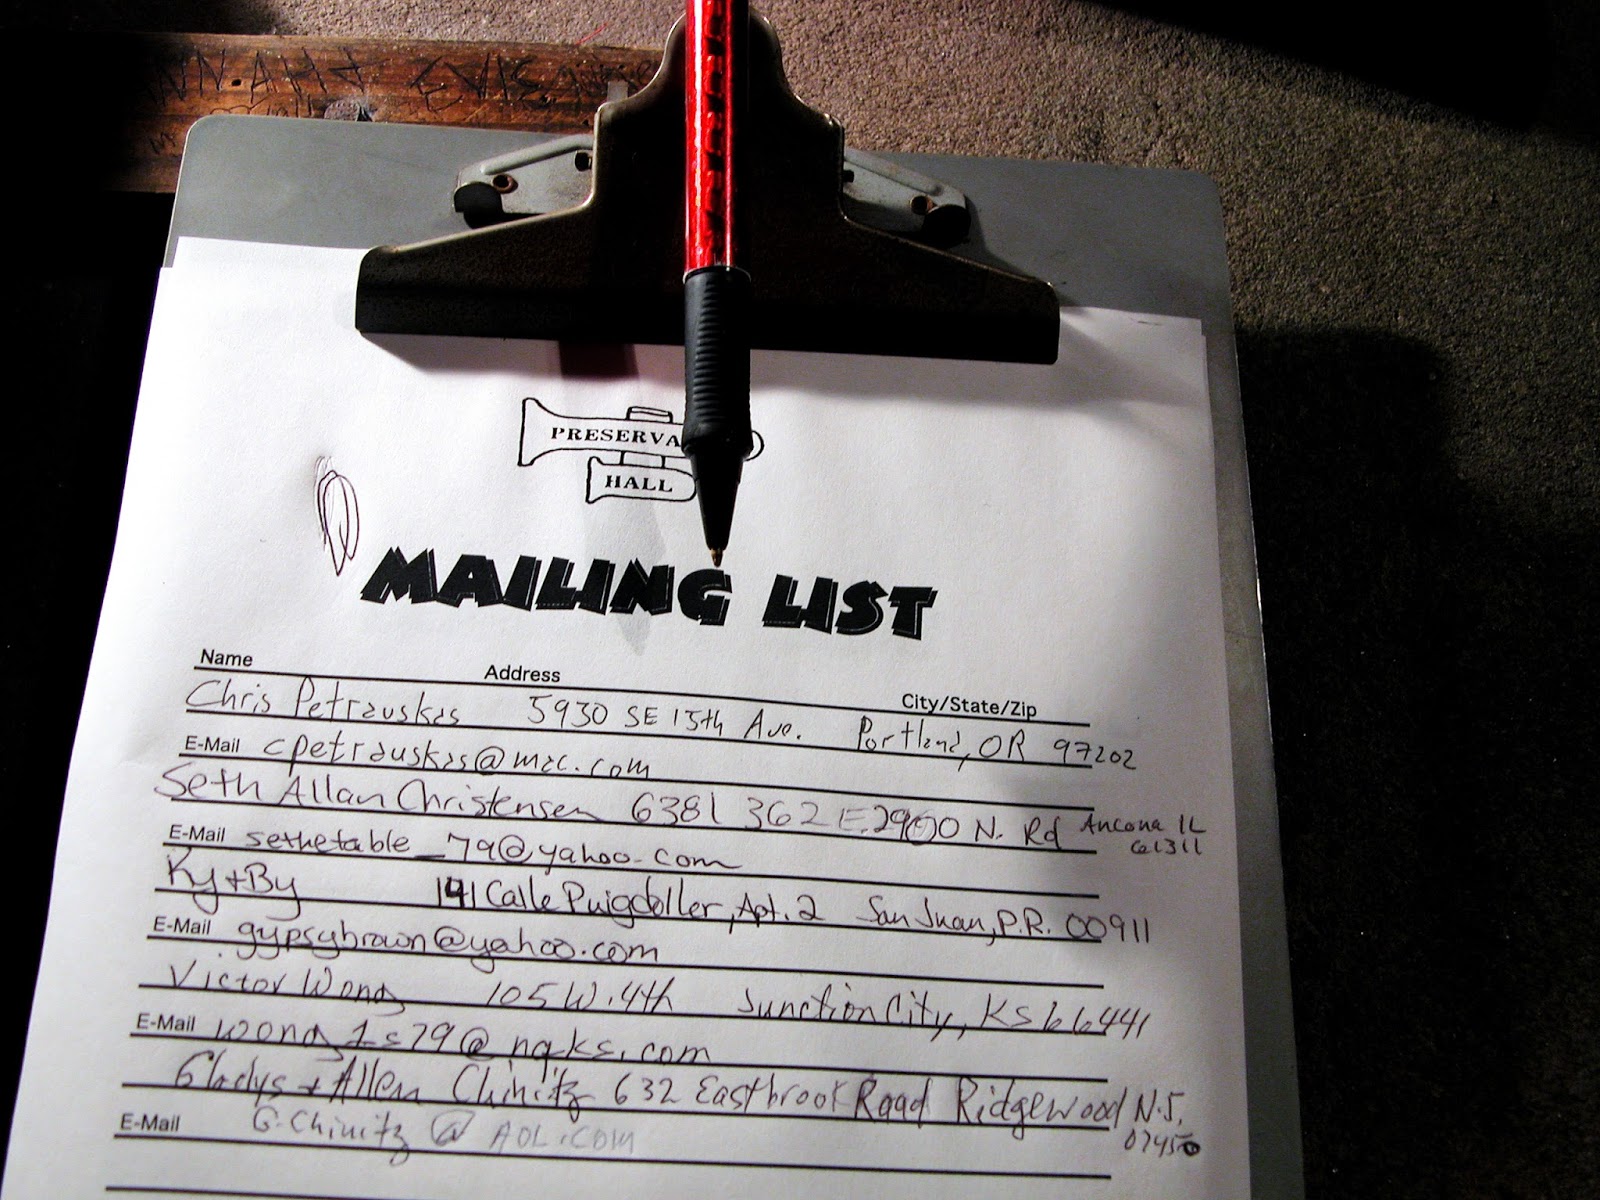 PRESERVA
HALL
MAILING LIST
Name Address City/State/Zip
Chris Petrauskas 5930 SE 15th Ave. Portland, OR 97202
E-Mail cpetrauskas@mac.com
Seth Allan Christensen 6381 362 E. 2900 N. Rd Ancona IL
61311
E-Mail sethetable_79@yahoo.com
Ky + By 141 Calle Puigdoller, Apt. 2 San Juan, P.R. 00911
E-Mail gypsybrown@yahoo.com
Victor Wong 105 W. 4th Junction City, KS 66441
E-Mail wong1s79@nqks.com
Gladys + Allen Chinitz 632 Eastbrook Road Ridgewood N.J.
07450
E-Mail G.Chinitz @ AOL.COM